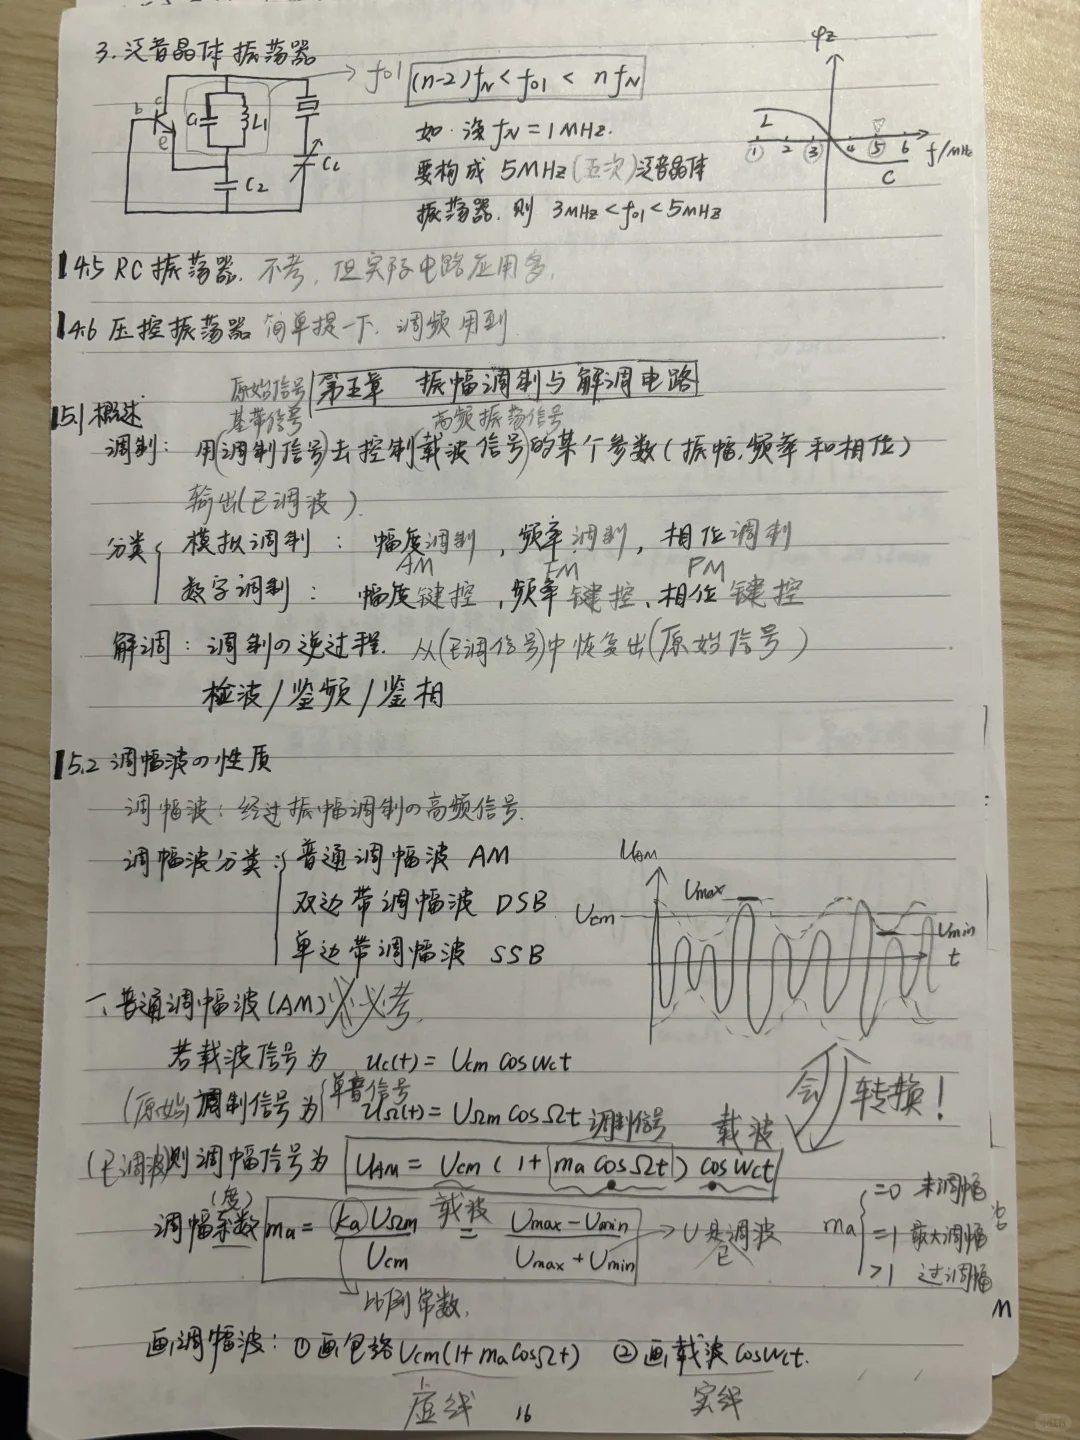 3. 泛音晶体振荡器
b c e C1 L1 C2 CL
f01 (n-2)fN < f01 < n fN
如:设 fN = 1MHz.
要构成 5MHz(五次)泛音晶体
振荡器. 则 3MHz < f01 < 5MHz
φz
L
1 2 3 4 5 6 f/MHz
C
4.5 RC振荡器. 不考, 但实际电路应用多.
4.6 压控振荡器 简单提一下. 调频用到
第五章 振幅调制与解调电路
5.1 概述
原始信号
基带信号 高频振荡信号
调制: 用(调制信号)去控制(载波信号)的某个参数(振幅,频率和相位)
输出(已调波).
分类 模拟调制: 幅度调制, 频率调制, 相位调制
AM FM PM
数字调制: 幅度键控, 频率键控、相位键控
解调: 调制の逆过程. 从(已调信号)中恢复出(原始信号)
检波/鉴频/鉴相
5.2 调幅波の性质
调幅波: 经过振幅调制の高频信号.
调幅波分类: 普通调幅波 AM
双边带调幅波 DSB
单边带调幅波 SSB
UAM
Umax
Ucm
Umin
t
一、普通调幅波(AM) 必考.
若载波信号为 uc(t) = Ucm cosωct
(原始)调制信号为 单音信号 uΩ(t) = UΩm cosΩt 调制信号 载波
会 转换!
(已调波)则调幅信号为 UAM = Ucm (1 + ma cosΩt) cosωct
调幅系数(度) ma = kaUΩm / Ucm 载波 = Umax - Umin / Umax + Umin → U是已调波
比例常数.
ma =0 未调幅
=1 最大调幅
>1 过调幅
画调幅波: ①画包络 Ucm(1+ma cosΩt) ②画载波 cosωct.
虚线 实线
16